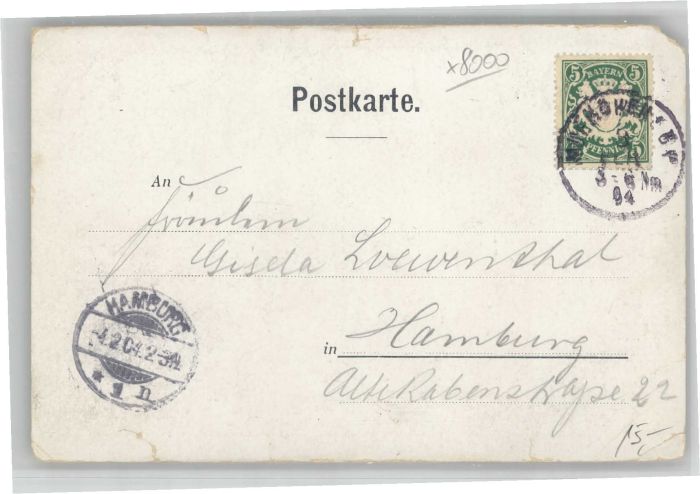 x8000
Postkarte.
5 5
BAYERN
PFENNIG
3-6 Nm
04
An
Fräulein
Gisela Loewenthal
in Hamburg
Alte Rabenstraße 22
HAMBURG
-4.2.04.2-3N.
* 1 n
15,-